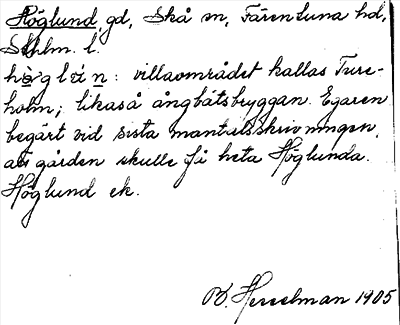 Höglund, gd, Skå sn, Färentuna hd,
Sthlm. l.
villaområdet kallas Ture-
holm; likaså ångbåtsbryggan. Egaren
begärt vid sista mantalsskrivningen,
att gården skulle få heta Höglunda.
Höglund ek.
B. Hesselman 1905